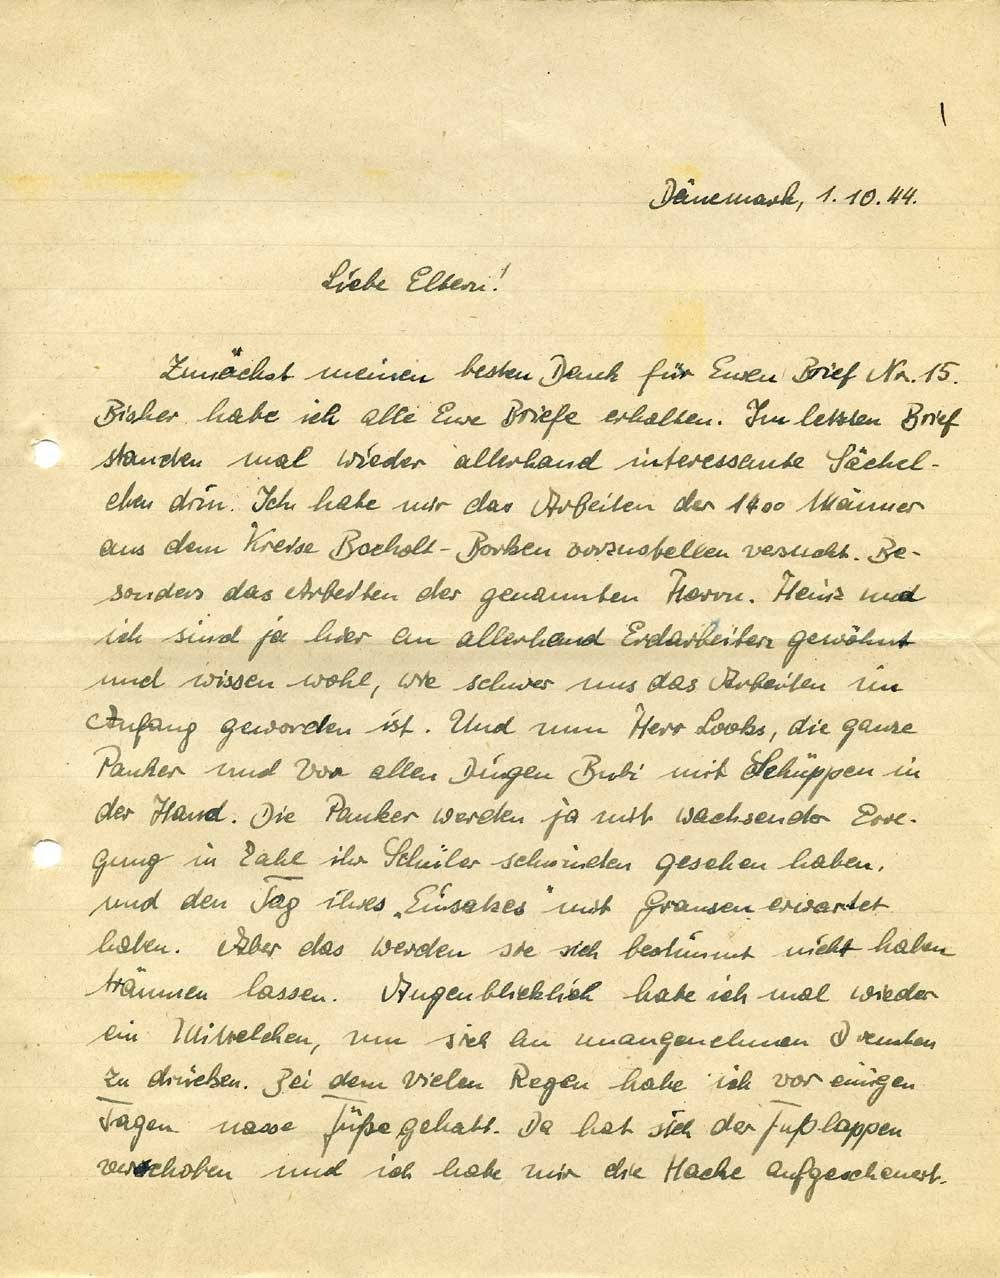 1
Dänemark, 1.10.44.
Liebe Eltern!
Zunächst meinen besten Dank für Euren Brief Nr. 15.
Bisher habe ich alle Eure Briefe erhalten. Im letzten Brief
standen mal wieder allerhand interessante Sächel-
chen drin. Ich habe mir das Arbeiten der 1400 Männer
aus dem Kreise Bocholt-Borken vorzustellen versucht. Be-
sonders das Arbeiten der genannten Herrn. Heinz und
ich sind ja hier an allerhand Erdarbeiten gewöhnt
und wissen wohl, wie schwer uns das Arbeiten im
Anfang geworden ist. Und nun Herr Looks, die ganze
Pauker und vor allen Dingen Bubi mit Schüppen in
der Hand. Die Pauker werden ja mit wachsender Erre-
gung in Zahl ihr Schüler schwinden gesehen haben,
und den Tag ihres „Einsatzes" mit Grausen erwartet
haben. Aber das werden sie sich bestimmt nicht haben
träumen lassen. Augenblicklich habe ich mal wieder
ein Mittelchen, um sich an unangenehmen Diensten
zu drücken. Bei dem vielen Regen habe ich vor einigen
Tagen nasse Füße gehabt. Da hat sich der Fußlappen
verschoben und ich habe mir die Hacke aufgescheuert.